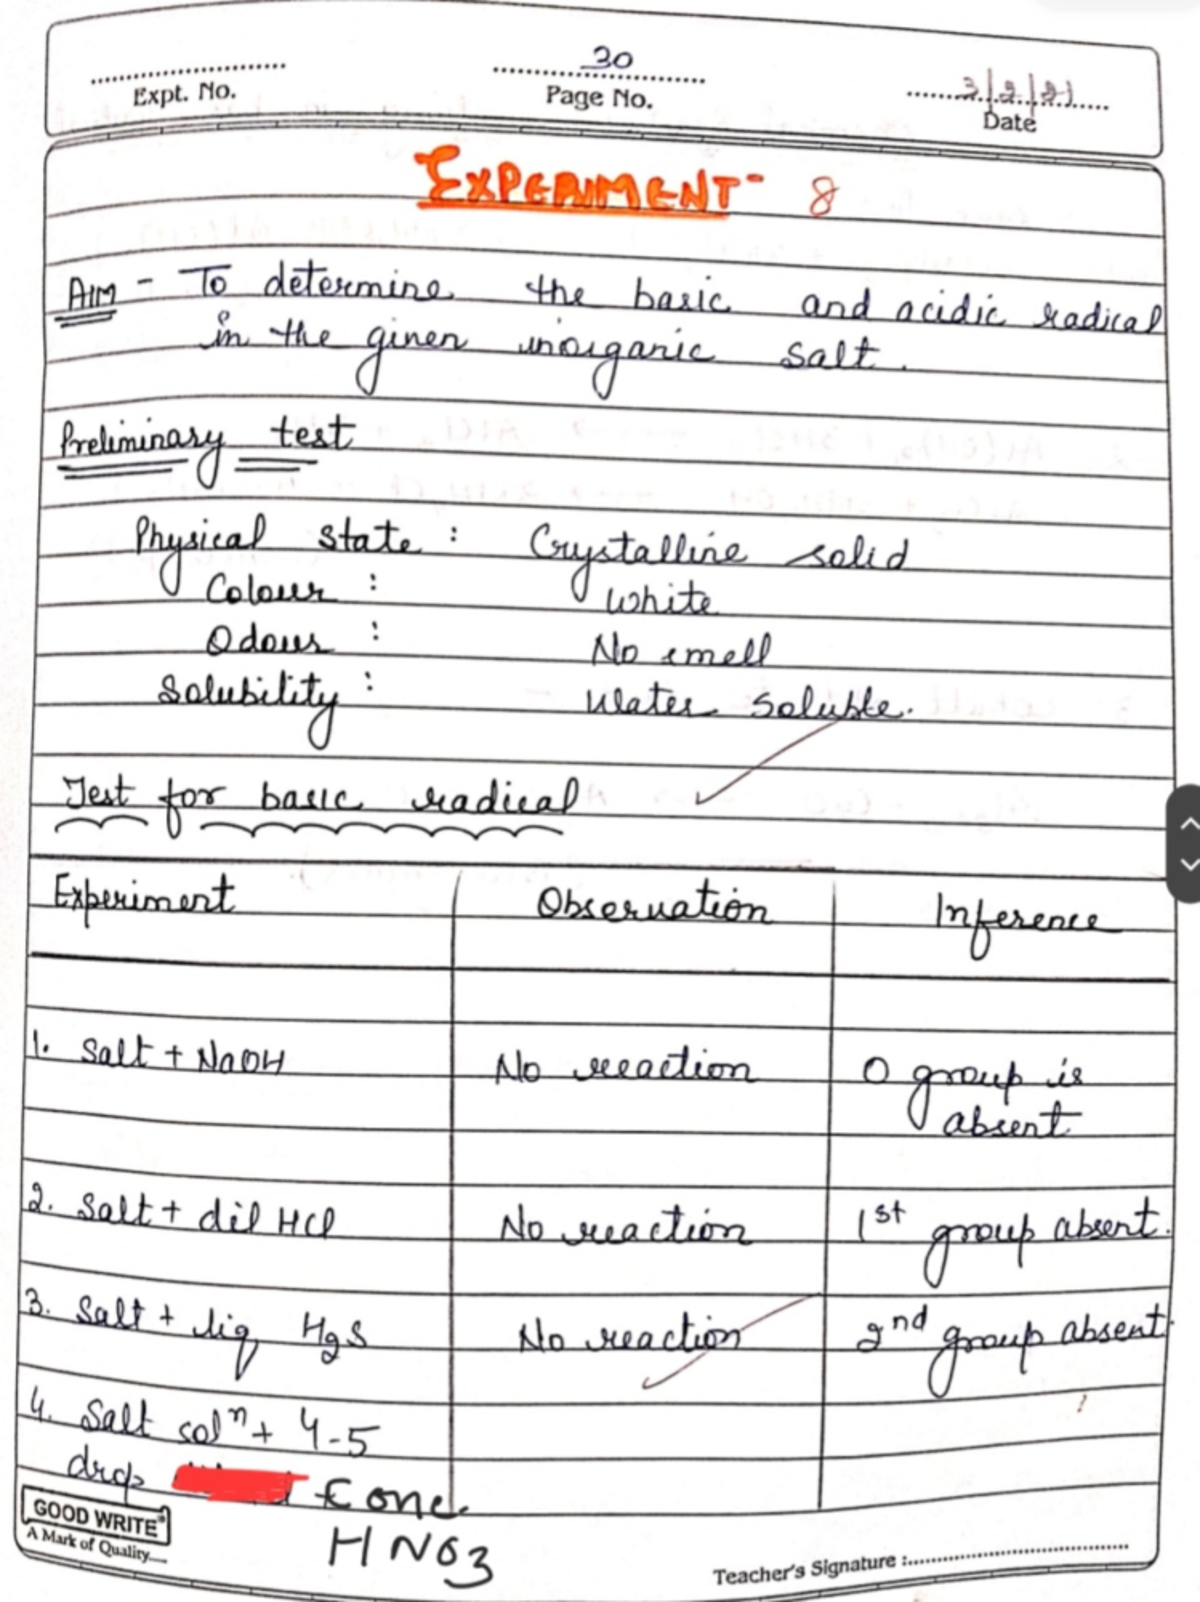 30
3/2/21
Expt. No.
Page No.
Date
EXPERIMENT- 8
AIM - To determine the basic and acidic radical
in the given inorganic salt.
Preliminary test
Physical state : Crystalline solid
Colour : White
Odour : No smell
Solubility : Water soluble.
Test for basic radical
Experiment Observation Inference
1. Salt + NaOH No reaction O group is
absent
2. Salt + dil HCl No reaction 1st group absent.
3. Salt + liq H2S No reaction 2nd group absent.
4. Salt solⁿ + 4-5
drop Conc.
HNO3
GOOD WRITE
A Mark of Quality.....
Teacher's Signature :